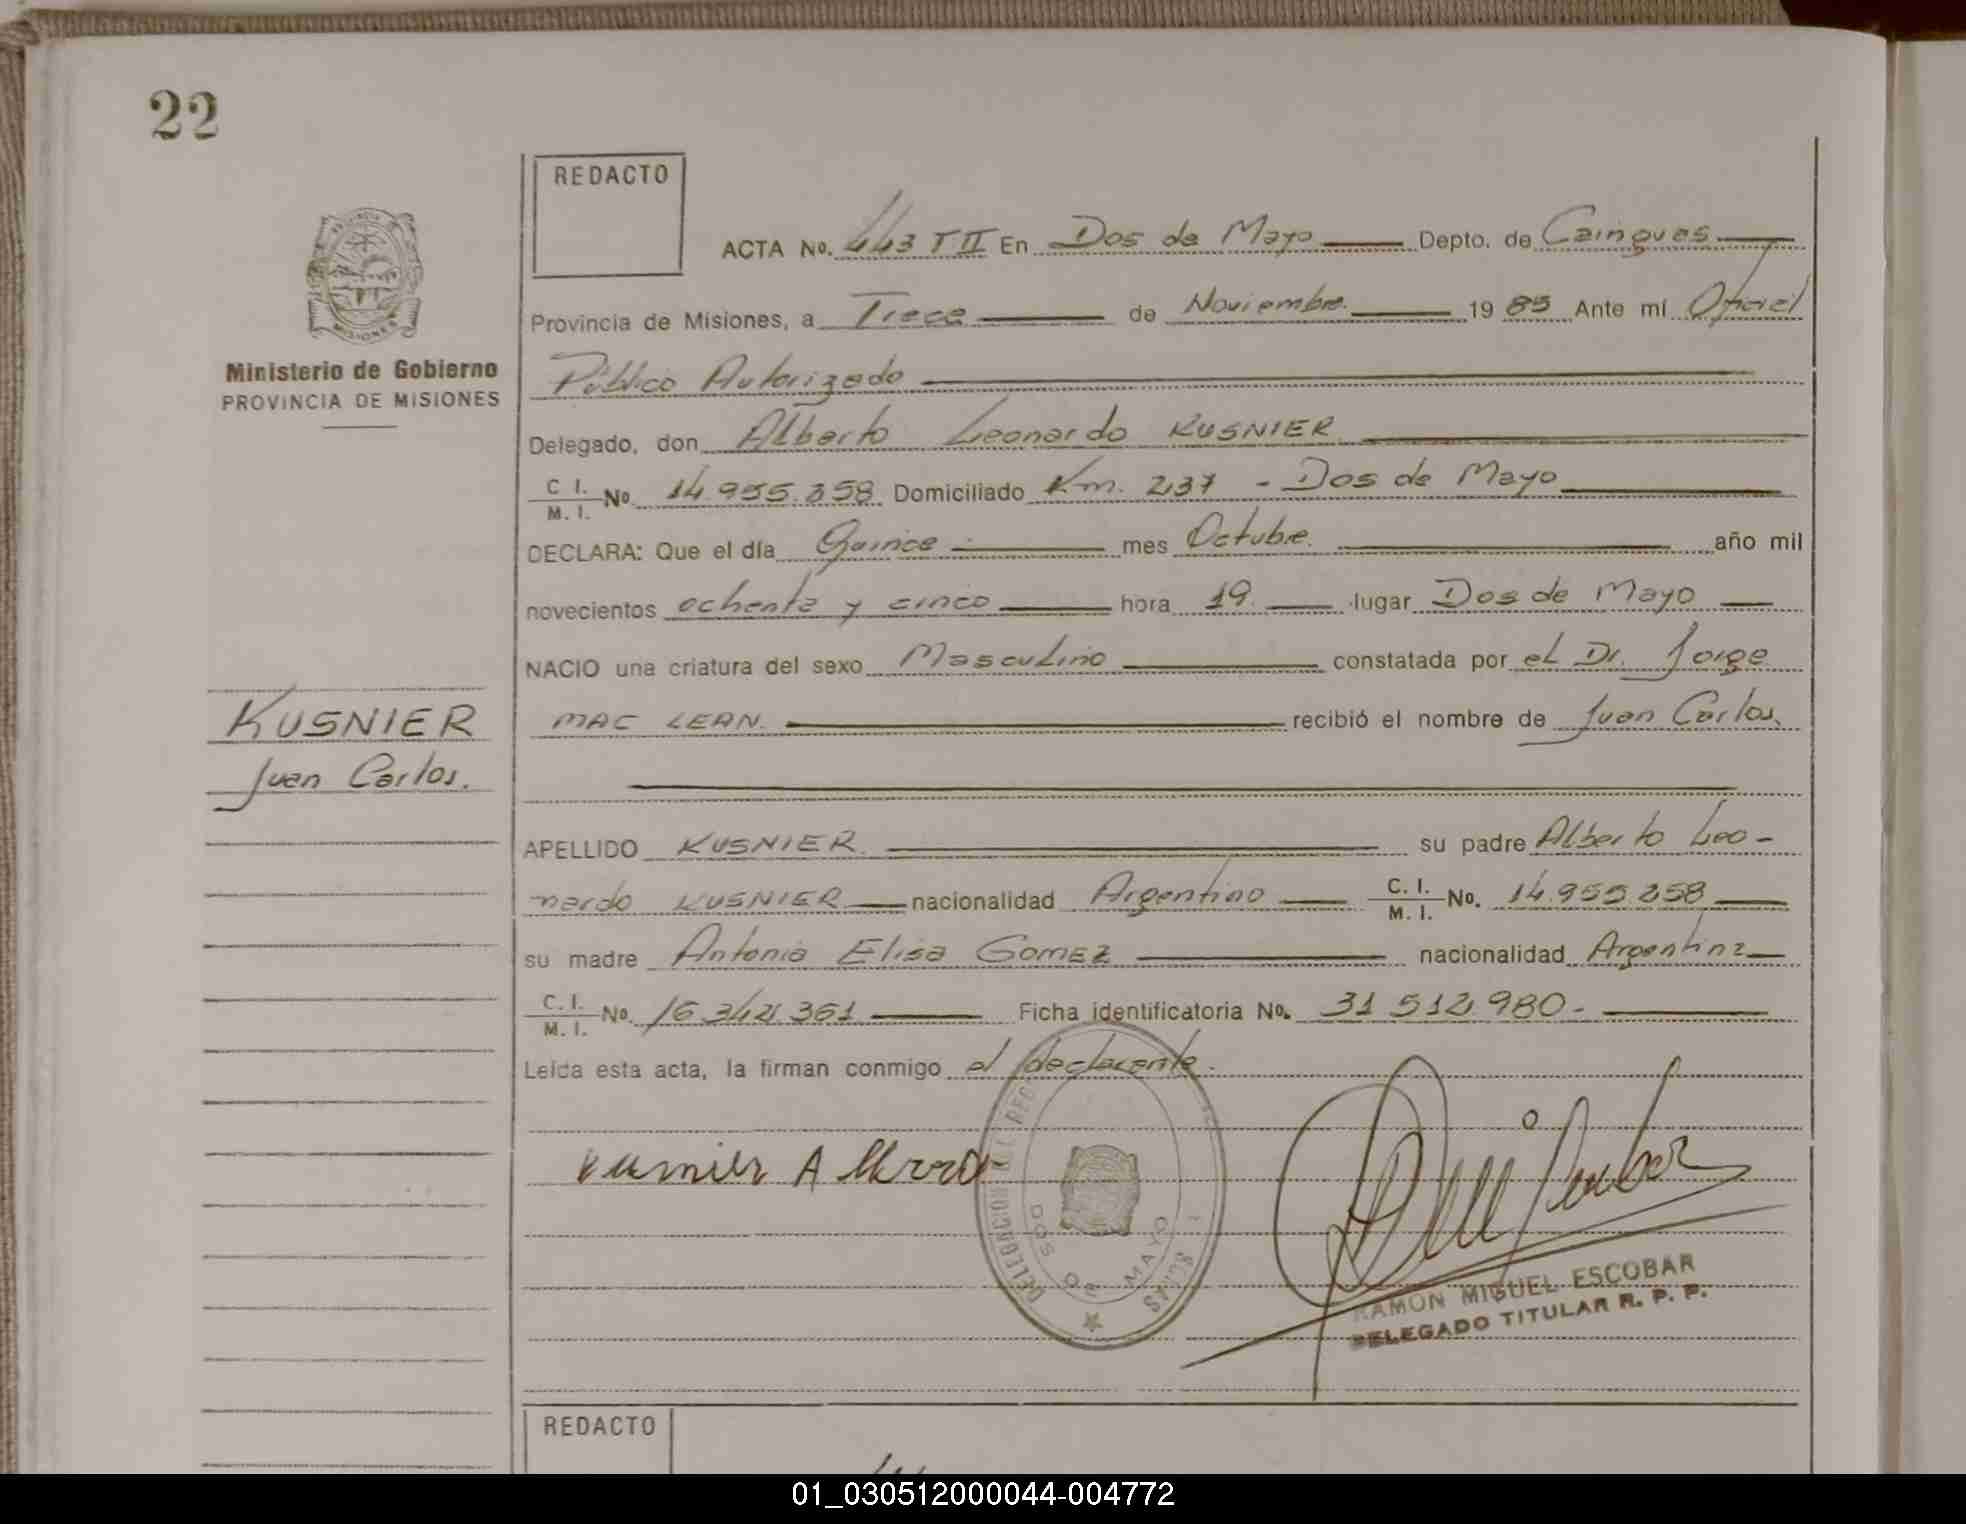 22
REDACTO
ACTA No. 443 T II En Dos de Mayo Depto. de Cainguas
Provincia de Misiones, a Trece de Noviembre 1985 Ante mí Oficial
Público Autorizado
Ministerio de Gobierno
PROVINCIA DE MISIONES
Delegado, don Alberto Leonardo KUSNIER
C I. M. I. No. 14.955.258 Domiciliado Km. 237 - Dos de Mayo
DECLARA: Que el día Quince mes Octubre. año mil
novecientos ochenta y cinco hora 19. lugar Dos de Mayo
NACIO una criatura del sexo Masculino constatada por el Dr. Jorge
MAC LEAN. recibió el nombre de Juan Carlos.
KUSNIER
Juan Carlos.
APELLIDO KUSNIER. su padre Alberto Leo-
nardo KUSNIER nacionalidad Argentino C. I. M. I. No. 14.955.258
su madre Antonia Elisa GOMEZ nacionalidad Argentina
C. I. M. I. No. 16.342.361 Ficha identificatoria No. 31.512.980-
Leída esta acta, la firman conmigo el declarante.
Kusnier Alberto
DOS DE MAYO
RAMON MIGUEL ESCOBAR
DELEGADO TITULAR R. P. P.
REDACTO
01_030512000044-004772